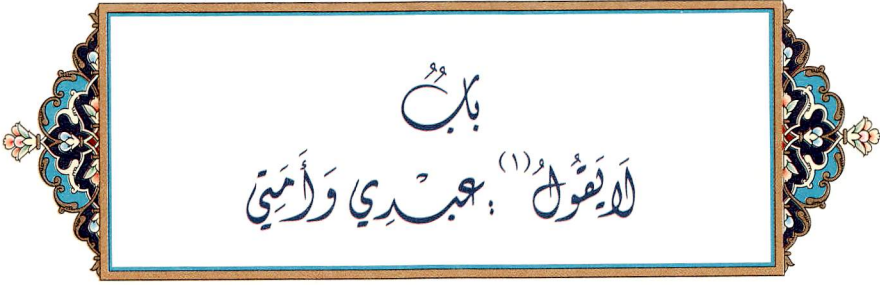 بَابٌ
لَا يَقُولُ (١): عَبْدِي وَأَمَتِي